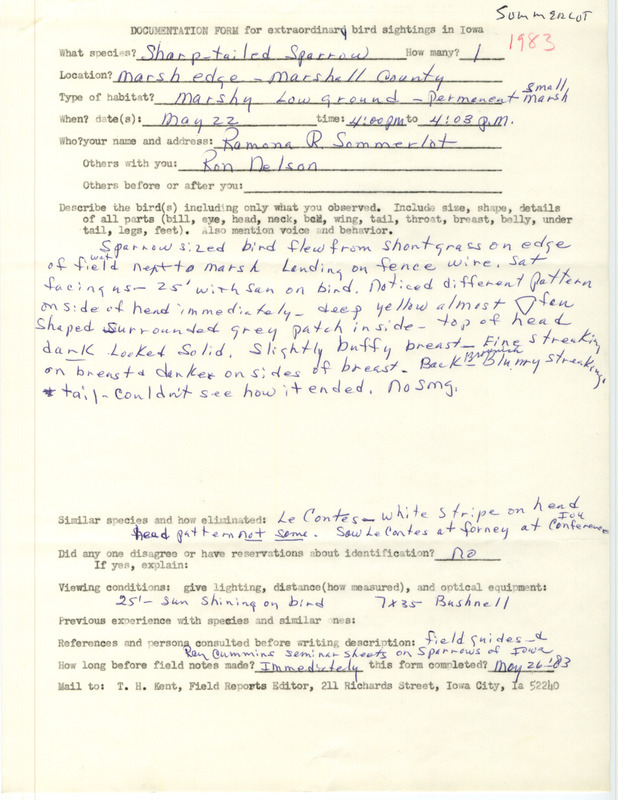 SOMMERLOT
1983
DOCUMENTATION FORM for extraordinary bird sightings in Iowa
What species? Sharp-tailed Sparrow How many? 1
Location? Marsh edge - Marshall County
Type of habitat? Marshy Low ground - Permanent small marsh
When? date(s): May 22 time: 4:00pm to 4:03 P.M.
Who?your name and address: Ramona R Sommerlot
Others with you: Ron Nelson
Others before or after you:
Describe the bird(s) including only what you observed. Include size, shape, details
of all parts (bill, eye, head, neck, back, wing, tail, throat, breast, belly, under
tail, legs, feet). Also mention voice and behavior.
Sparrow sized bird flew from short grass on edge
of wet field next to marsh Landing on fence wire. Sat
facing us - 25' with sun on bird. Noticed different pattern
on side of head immediately - deep yellow almost fan
Shaped surrounded grey patch inside - top of head
dark Looked Solid. Slightly buffy breast - Fine streaking
on breast & darker on sides of breast. Back - Brownish Blurry streaking,
tail - Couldn't see how it ended. No Smg.
Similar species and how eliminated: Le Contes - white stripe on head
head pattern not same. Saw LeContes at forney at IOU Conference
Did any one disagree or have reservations about identification? No
If yes, explain:
Viewing conditions: give lighting, distance(how measured), and optical equipment:
25' - Sun Shining on bird 7x35 Bushnell
Previous experience with species and similar ones:
References and persons consulted before writing description: field guides - &
Ray Cummins seminar sheets on Sparrows of Iowa
How long before field notes made? Immediately this form completed? May 26 '83
Mail to: T. H. Kent, Field Reports Editor, 211 Richards Street, Iowa City, Ia 52240